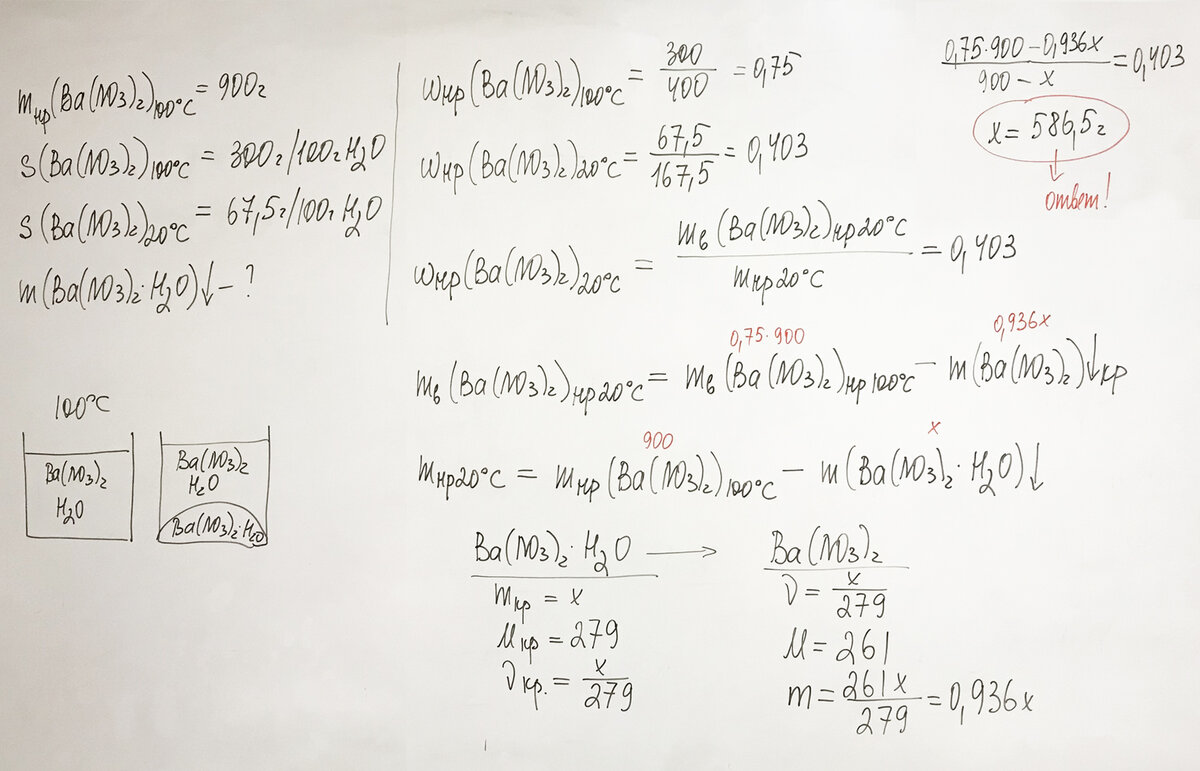 m нр(Ba(NO3)2)100°C = 900г
S(Ba(NO3)2)100°C = 300г/100г H2O
S(Ba(NO3)2)20°C = 67,5г/100г H2O
m(Ba(NO3)2·H2O)↓ – ?
100°C
Ba(NO3)2
H2O
Ba(NO3)2
H2O
Ba(NO3)2·H2O
ωнр(Ba(NO3)2)100°C = 300/400 = 0,75
ωнр(Ba(NO3)2)20°C = 67,5/167,5 = 0,403
ωнр(Ba(NO3)2)20°C = mв(Ba(NO3)2)нр20°C / mнр20°C = 0,403
0,75·900 0,936x
mв(Ba(NO3)2)нр20°C = mв(Ba(NO3)2)нр100°C – m(Ba(NO3)2)↓кр
900 x
mнр20°C = mнр(Ba(NO3)2)100°C – m(Ba(NO3)2·H2O)↓
Ba(NO3)2·H2O → Ba(NO3)2
mкр = x
Mкр = 279
νкр. = x/279
ν = x/279
M = 261
m = 261x/279 = 0,936x
0,75·900–0,936x / 900 – x = 0,403
x = 586,5г
ответ!